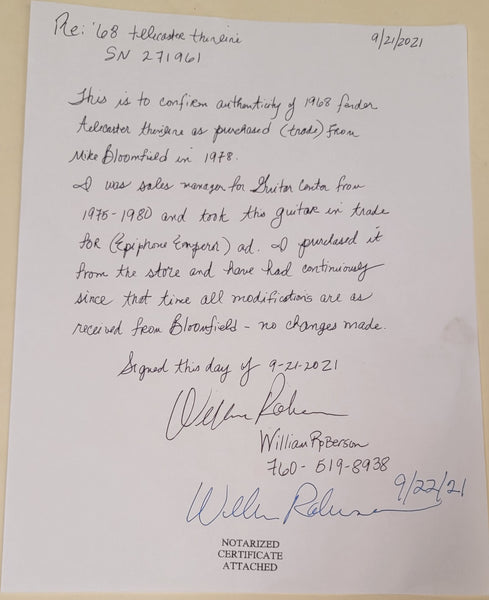 Re: '68 telecaster thinline
9/21/2021
SN 271961
This is to confirm authenticity of 1968 fender
telecaster thinline as purchased (trade) from
Mike Bloomfield in 1978.
I was sales manager for Guitar Center from
1975-1980 and took this guitar in trade
for (Epiphone Emperor) ad. I purchased it
from the store and have had continuously
since that time all modifications are as
received from Bloomfield - no changes made.
Signed this day of 9-21-2021
William Roberson
760-519-8938
9/22/21
NOTARIZED
CERTIFICATE
ATTACHED